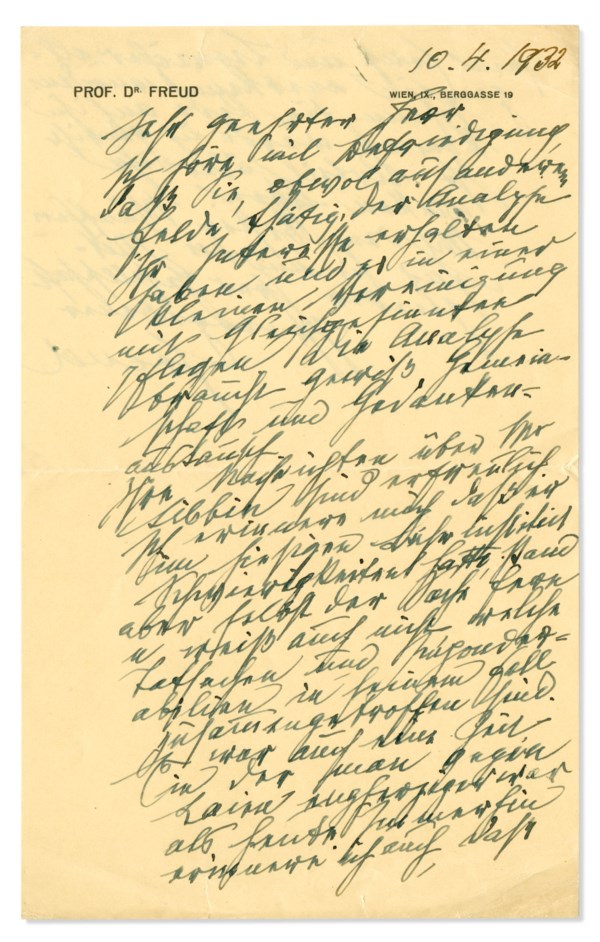 10.4.1932
PROF. DR. FREUD WIEN, IX., BERGGASSE 19
Sehr geehrter Herr
Ich höre mit Befriedigung,
daß Sie, obwol auf anderem
Felde thätig, der Analyse
Ihr Interesse erhalten
haben und es in einer
kleinen Vereinigung
mit Gleichgesinnten
pflegen. Die Analyse
braucht gewiß Gemein-
schaft und Gedanken-
austausch.
Ihre Nachrichten über Mr
sind erfreulich.
Ich erinnere mich daß er
im hiesigen Lehrinstitut
Schwierigkeiten hatte, stand
aber selbst der Sache fern
u weiß auch nicht, welche
Tatsachen und Imponder-
abilien in seinem Fall
zusammengetroffen sind.
Es war auch eine Zeit
in der man gegen
Laien engherziger war
als heute. Immerhin
erinnere ich auch, daß